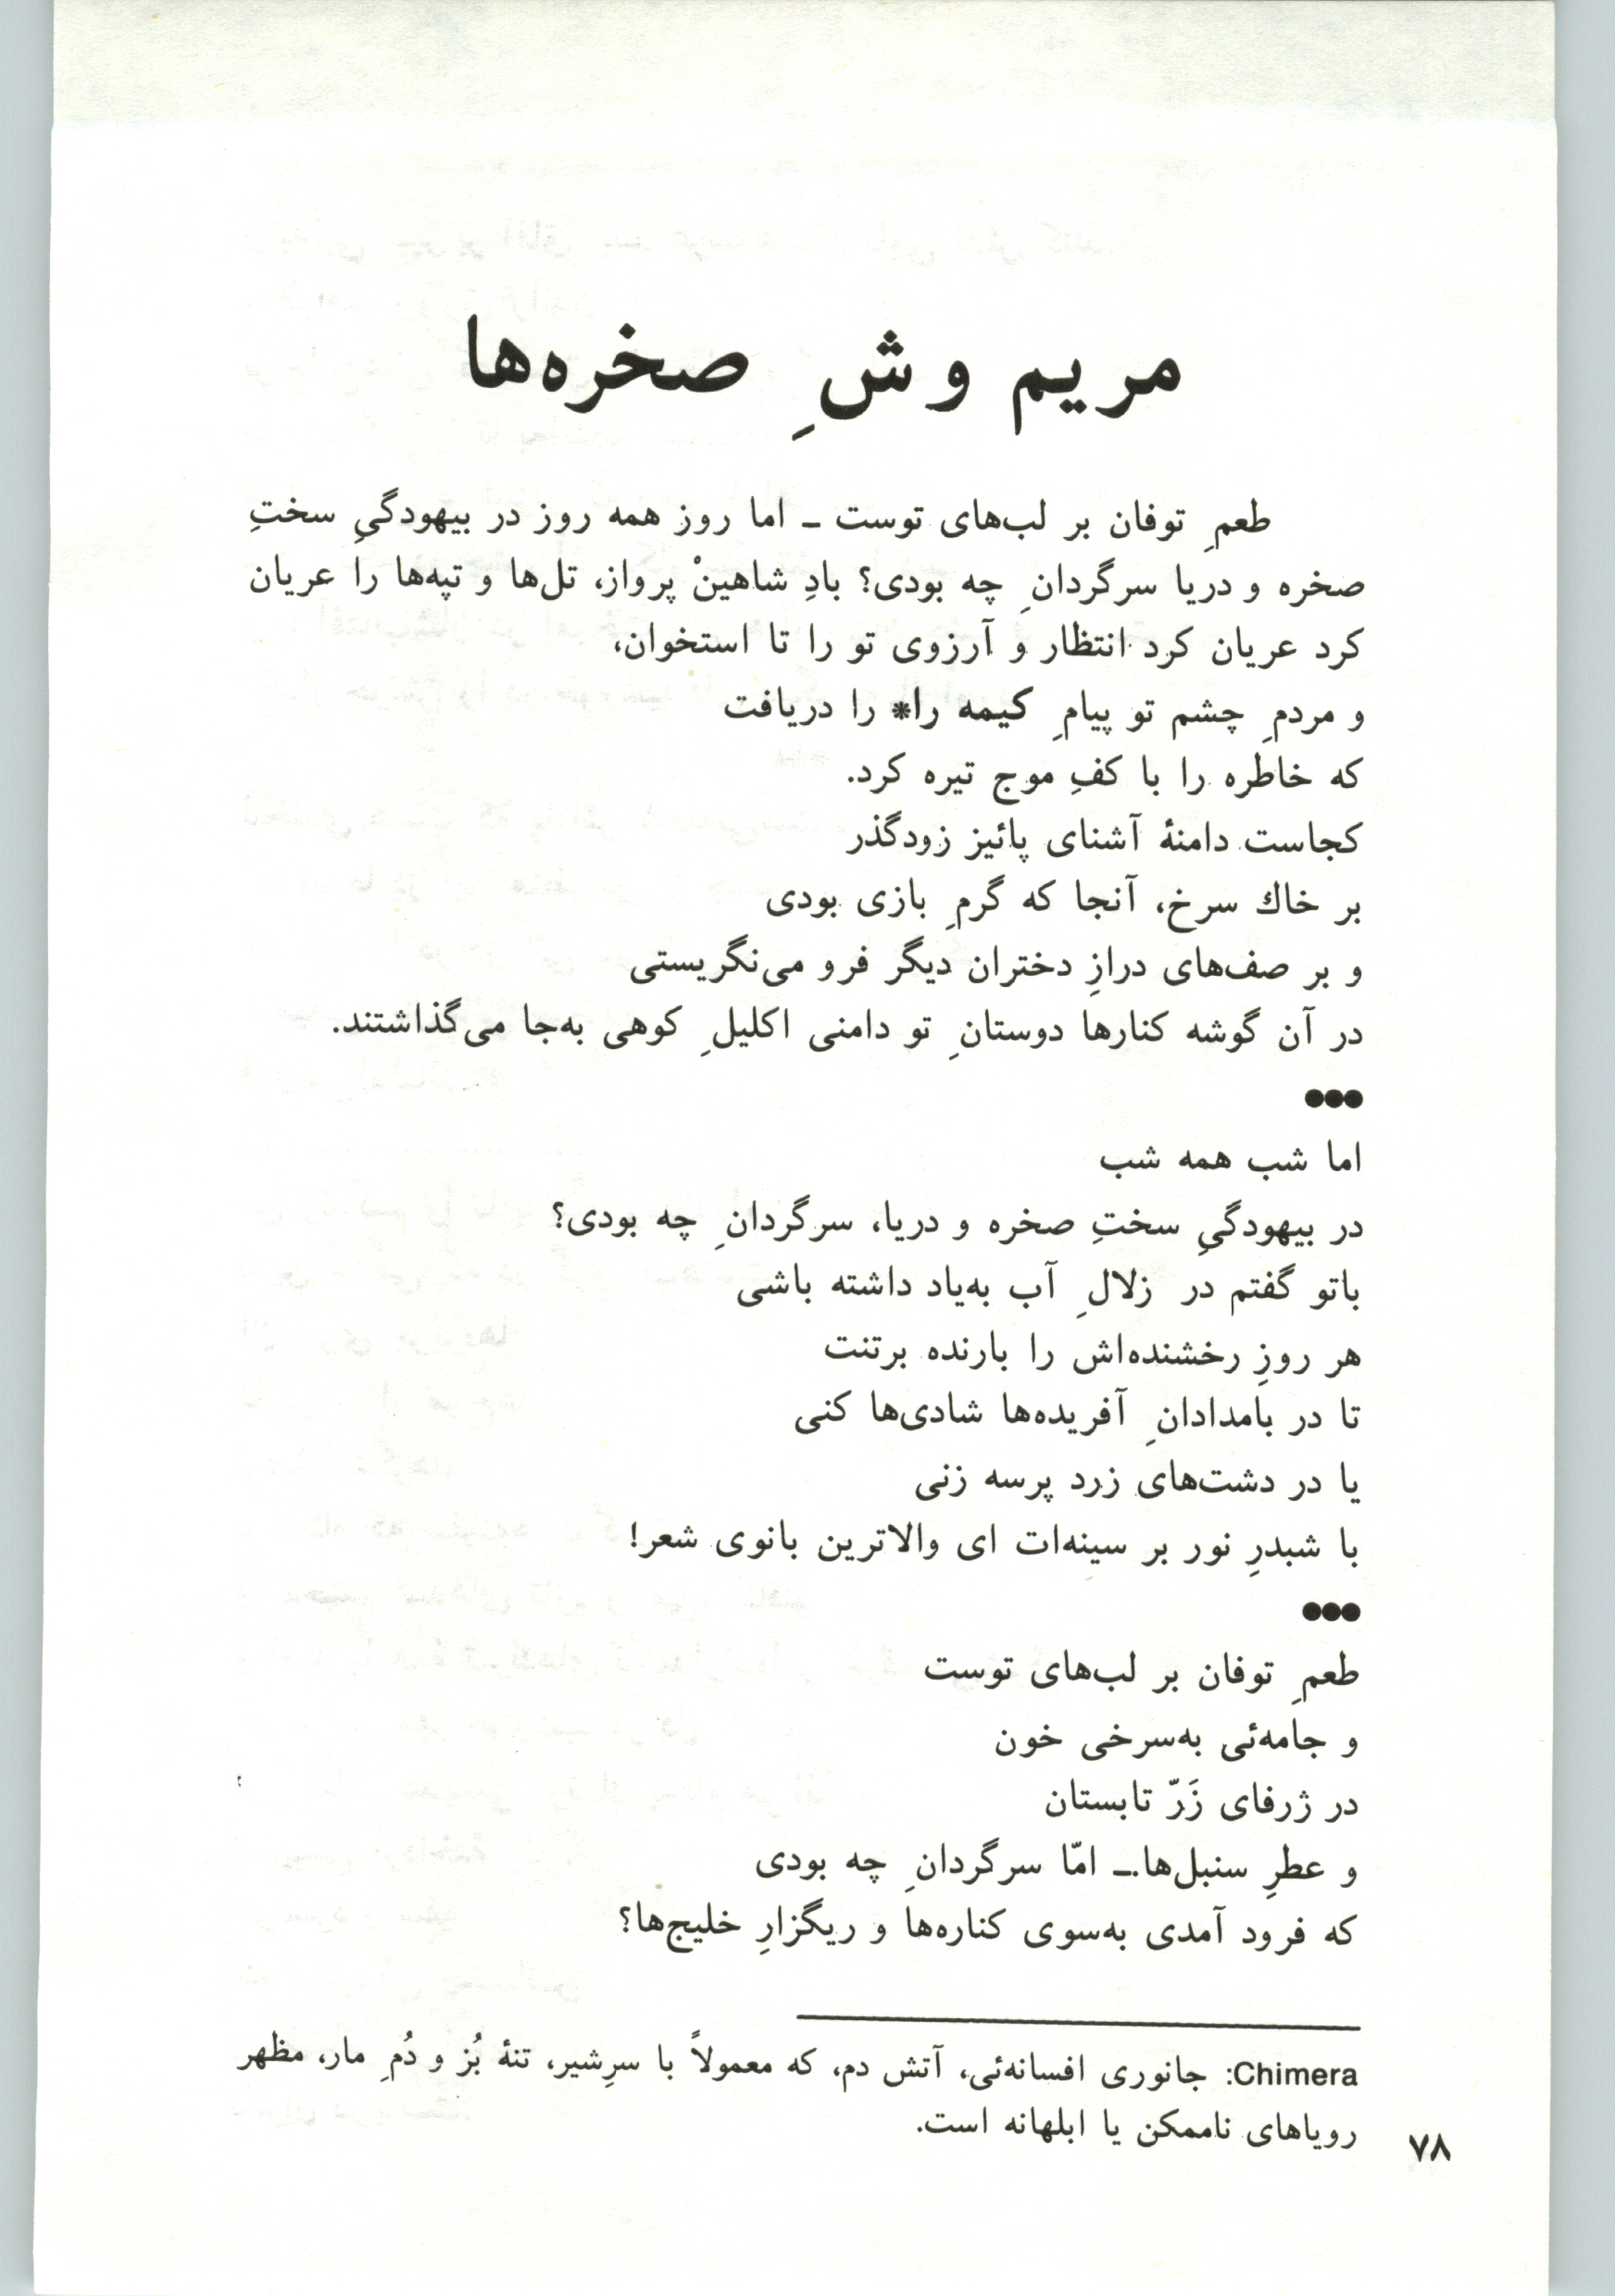 مریم وشِ صخره‌ها
طعمِ توفان بر لب‌های توست ـ اما روز همه روز در بیهودگیِ سختِ
صخره و دریا سرگردانِ چه بودی؟ بادِ شاهینْ پرواز، تل‌ها و تپه‌ها را عریان
کرد عریان کرد انتظار و آرزوی تو را تا استخوان،
و مردمِ چشم تو پیامِ کیمه را* را دریافت
که خاطره را با کفِ موج تیره کرد.
کجاست دامنهٔ آشنای پائیز زودگذر
بر خاك سرخ، آنجا که گرمِ بازی بودی
و بر صف‌های درازِ دختران دیگر فرو می‌نگریستی
در آن گوشه کنارها دوستانِ تو دامنی اکلیلِ کوهی به‌جا می‌گذاشتند.
●●●
اما شب همه شب
در بیهودگیِ سختِ صخره و دریا، سرگردانِ چه بودی؟
باتو گفتم در زلالِ آب به‌یاد داشته باشی
هر روزِ رخشنده‌اش را بارنده برتنت
تا در بامدادانِ آفریده‌ها شادی‌ها کنی
یا در دشت‌های زرد پرسه زنی
با شبدرِ نور بر سینه‌ات ای والاترین بانوی شعر!
●●●
طعمِ توفان بر لب‌های توست
و جامه‌ئی به‌سرخی خون
در ژرفای زَرّ تابستان
و عطرِ سنبل‌ها ـ امّا سرگردانِ چه بودی
که فرود آمدی به‌سوی کناره‌ها و ریگزارِ خلیج‌ها؟
Chimera: جانوری افسانه‌ئی، آتش دم، که معمولاً با سرِشیر، تنهٔ بُز و دُمِ مار، مظهر
رویاهای ناممکن یا ابلهانه است.
۷۸